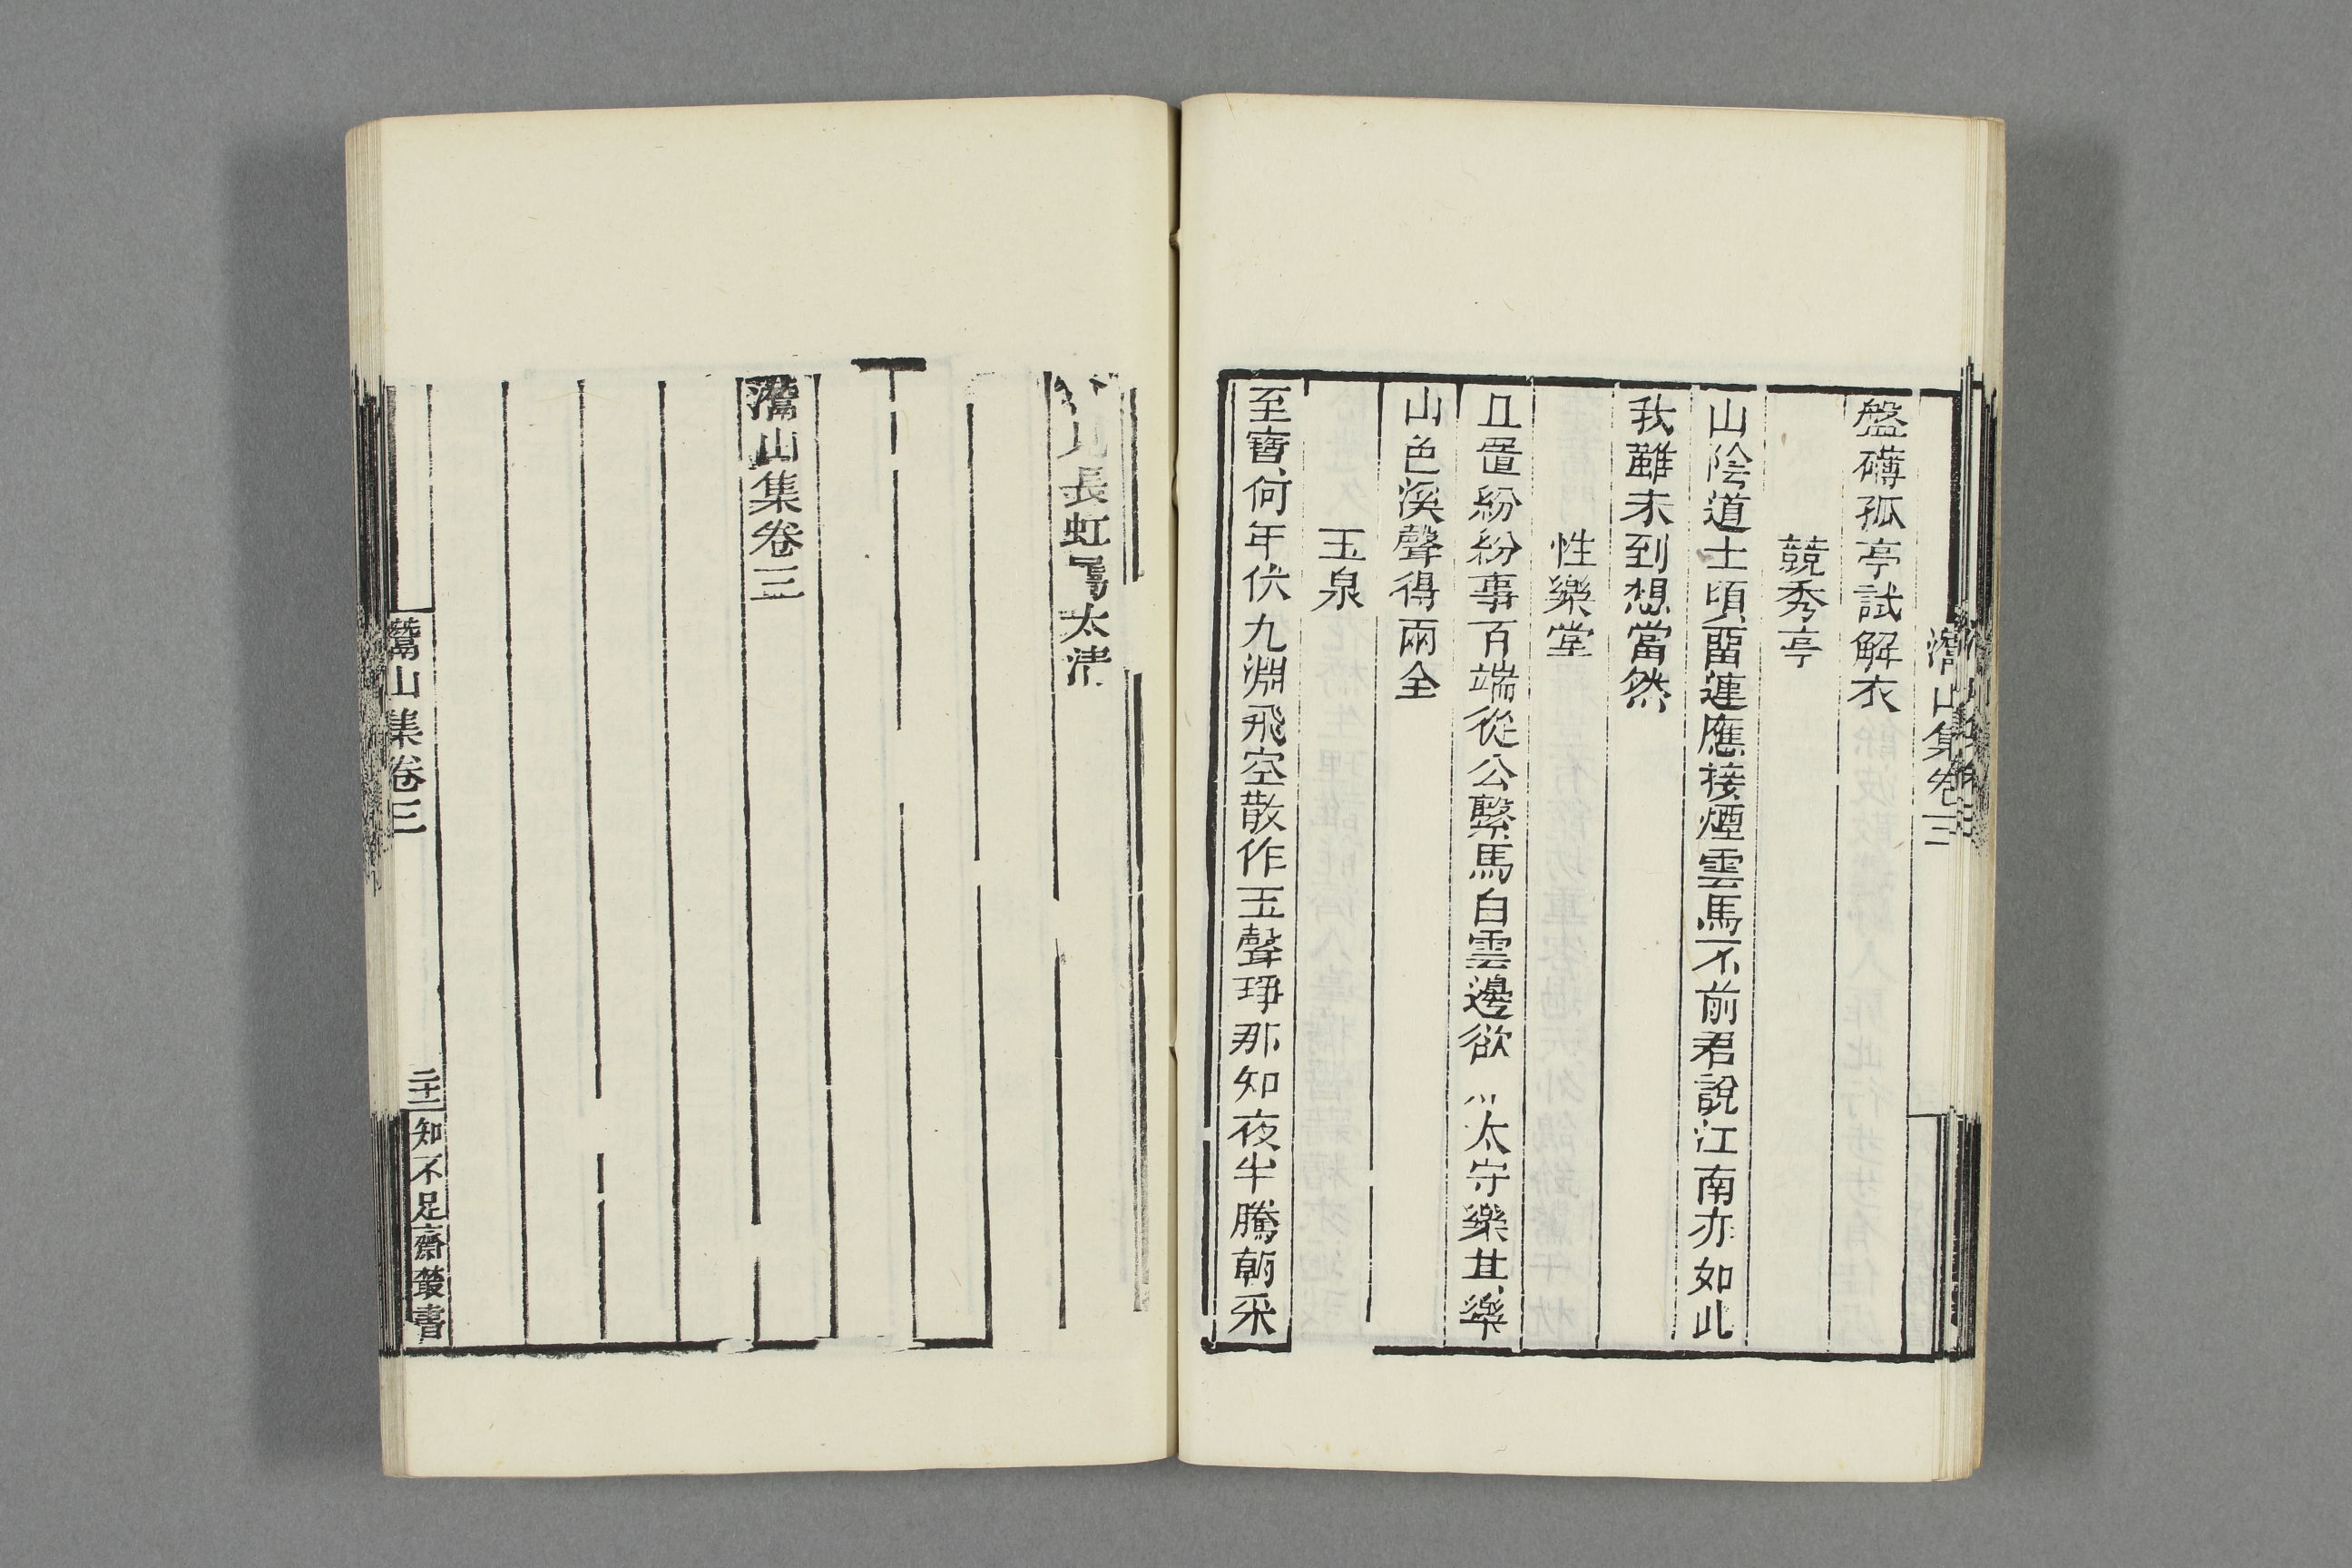 盤礴孤亭試解衣
競秀亭
山陰道士頃畱連應接煙雲馬不前君說江南亦如此
我雖未到想當然
性樂堂
且置紛紛事百端從公繫馬白雲邊欲太守樂其樂
山色溪聲得兩全
玉泉
至寶何年伏九淵飛空散作玉聲琤那知夜半騰朝采
長虹太清
灊山集卷三
灊山集卷三
二十二
知不足齋叢書